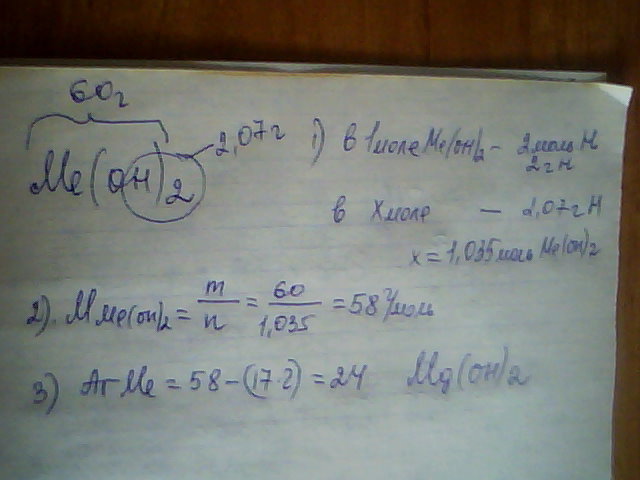 60г
Me(OH)2
2,07г
1) в 1моле Me(OH)2 - 2моль H
2г H
в Xмоле - 2,07г H
x = 1,035 моль Me(OH)2
2). M Me(OH)2 = m/n = 60/1,035 = 58 г/моль
3) Ar Me = 58-(17·2) = 24 Mg(OH)2